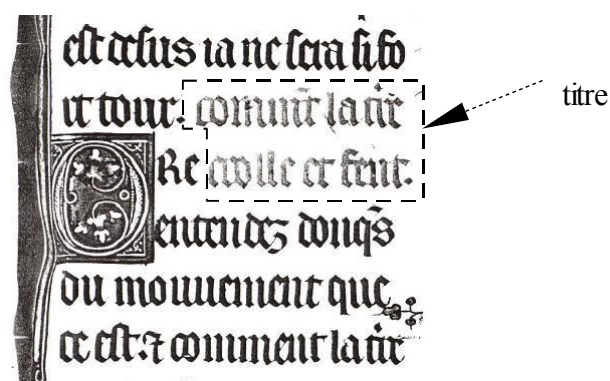 est desus ia ne sera si fo
rt tour. commēt la t̄re
ORe crolle et fent.
entendez donq̄s
du mouuement que
ce est. ⁊ comment la t̄re
titre